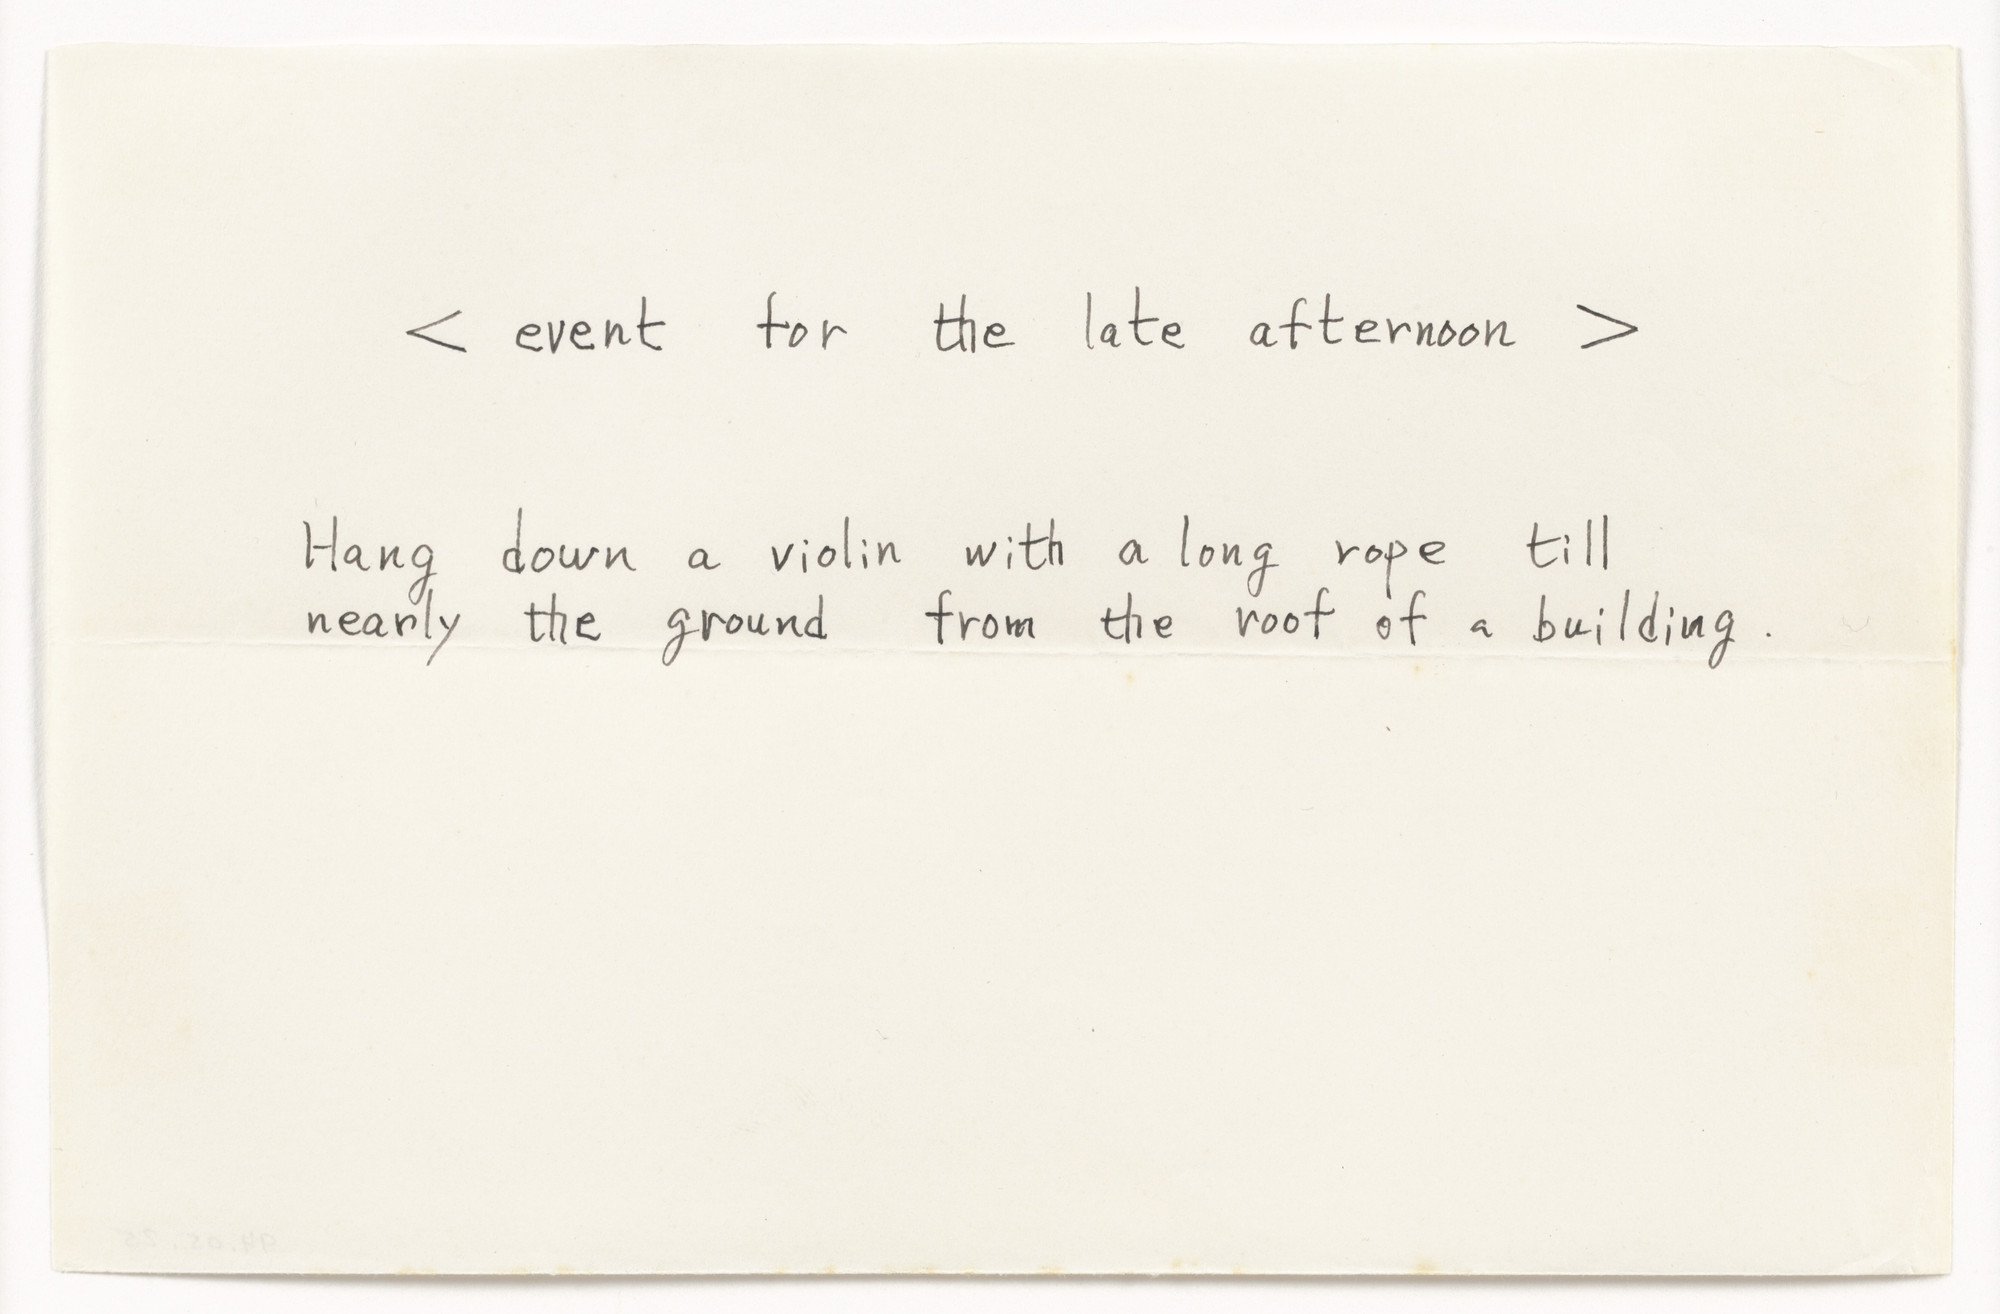 < event for the late afternoon >
Hang down a violin with a long rope till
nearly the ground from the roof of a building.